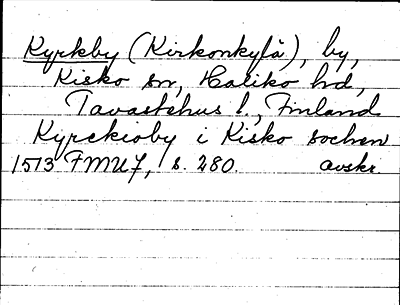 Kyrkby (Kirkonkylä), by,
Kisko sn, Haliko hd,
Tavastehus l., Finland
Kyrckioby i Kisko sochen
1513 FMU 7, s. 280. avskr.